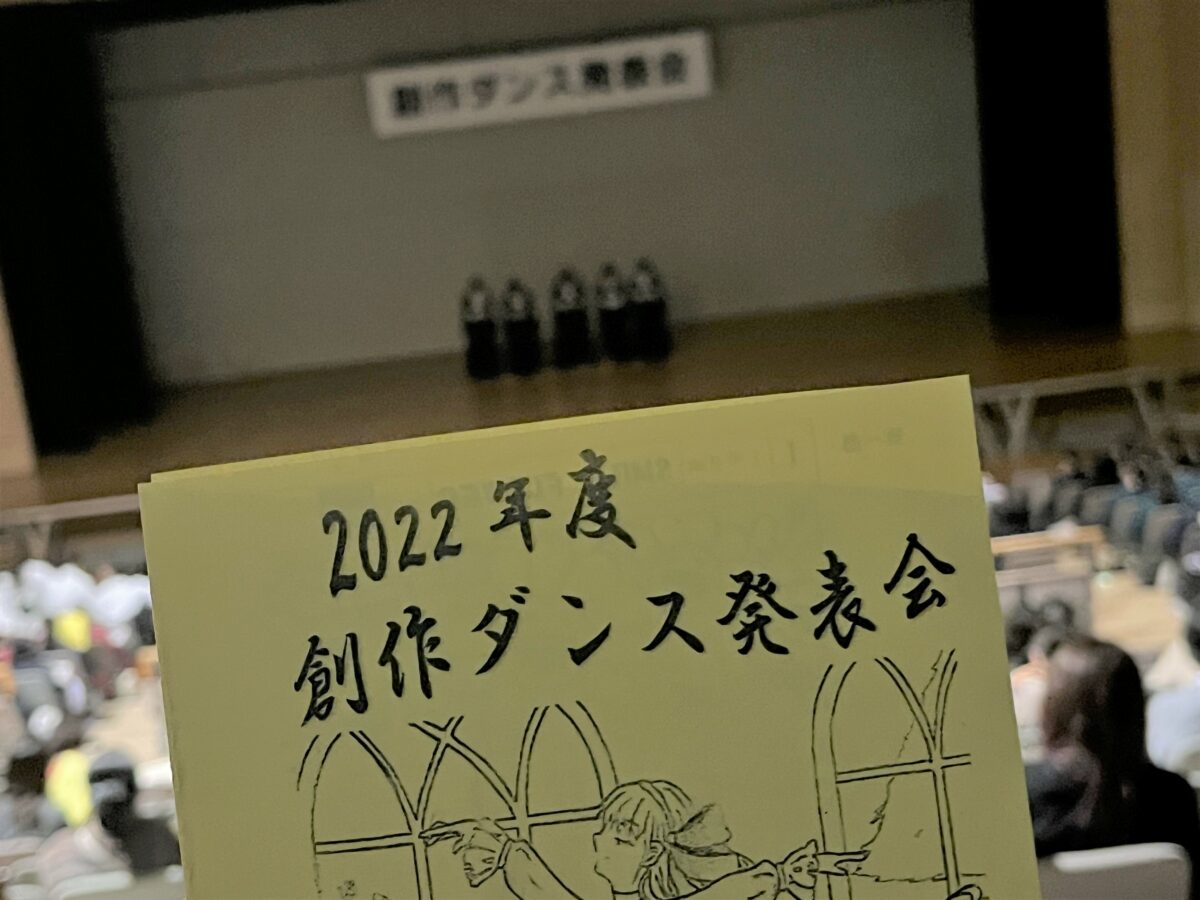 創作ダンス発表会
2022年度
創作ダンス発表会